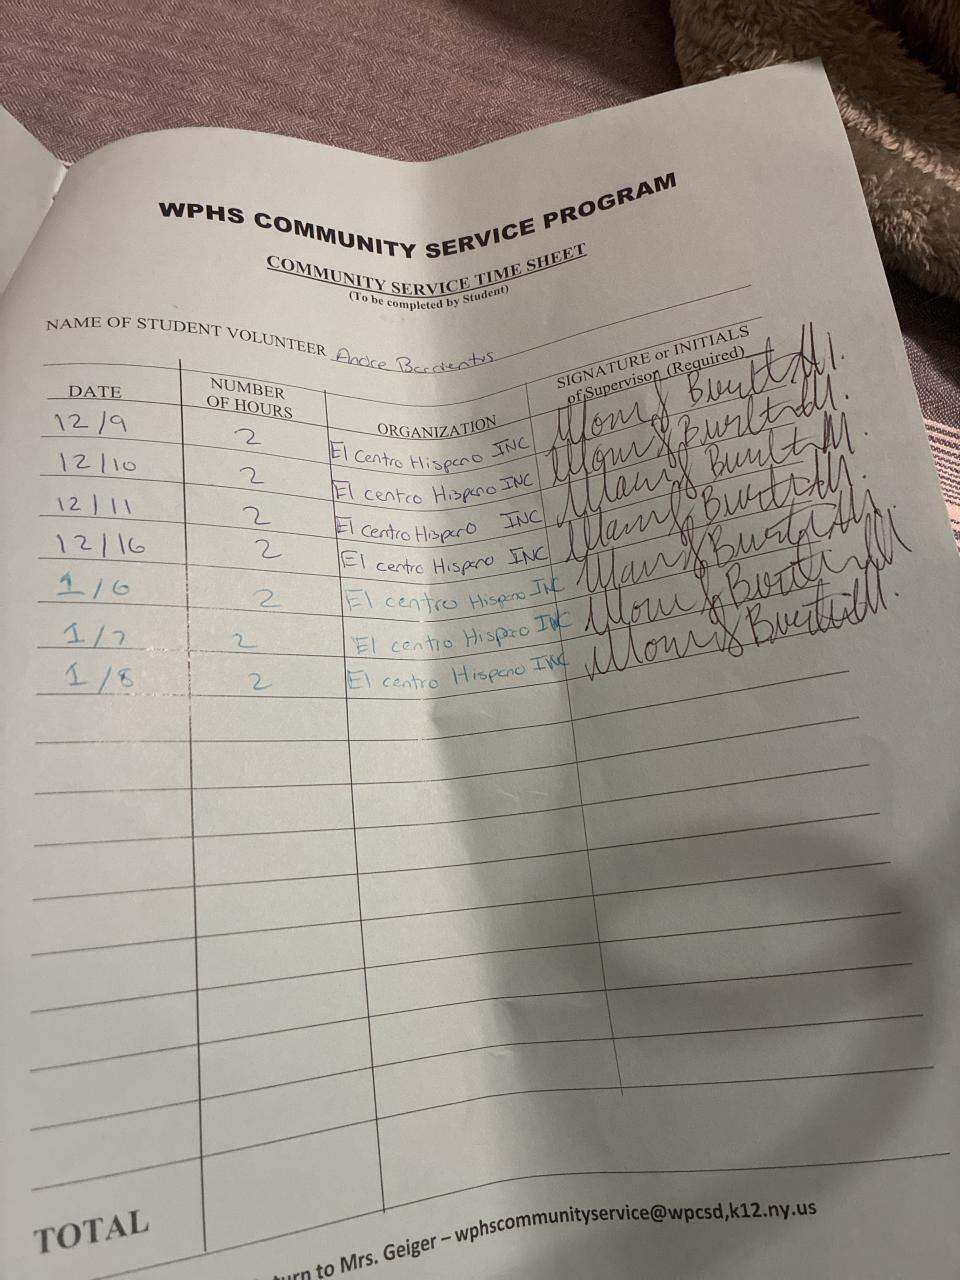 WPHS COMMUNITY SERVICE PROGRAM
COMMUNITY SERVICE TIME SHEET
(To be completed by Student)
NAME OF STUDENT VOLUNTEER Andre
DATE NUMBER OF HOURS ORGANIZATION SIGNATURE or INITIALS of Supervisor (Required)
12/9 2 El Centro Hispano INC
12/10 2 El centro Hispano INC
12/11 2 El centro Hispano INC
12/16 2 El centro Hispano INC
1/6 2 El centro Hispano INC
1/7 2 El centro Hispano INC
1/8 2 El centro Hispano INC
TOTAL
to Mrs. Geiger – wphscommunityservice@wpcsd,k12.ny.us